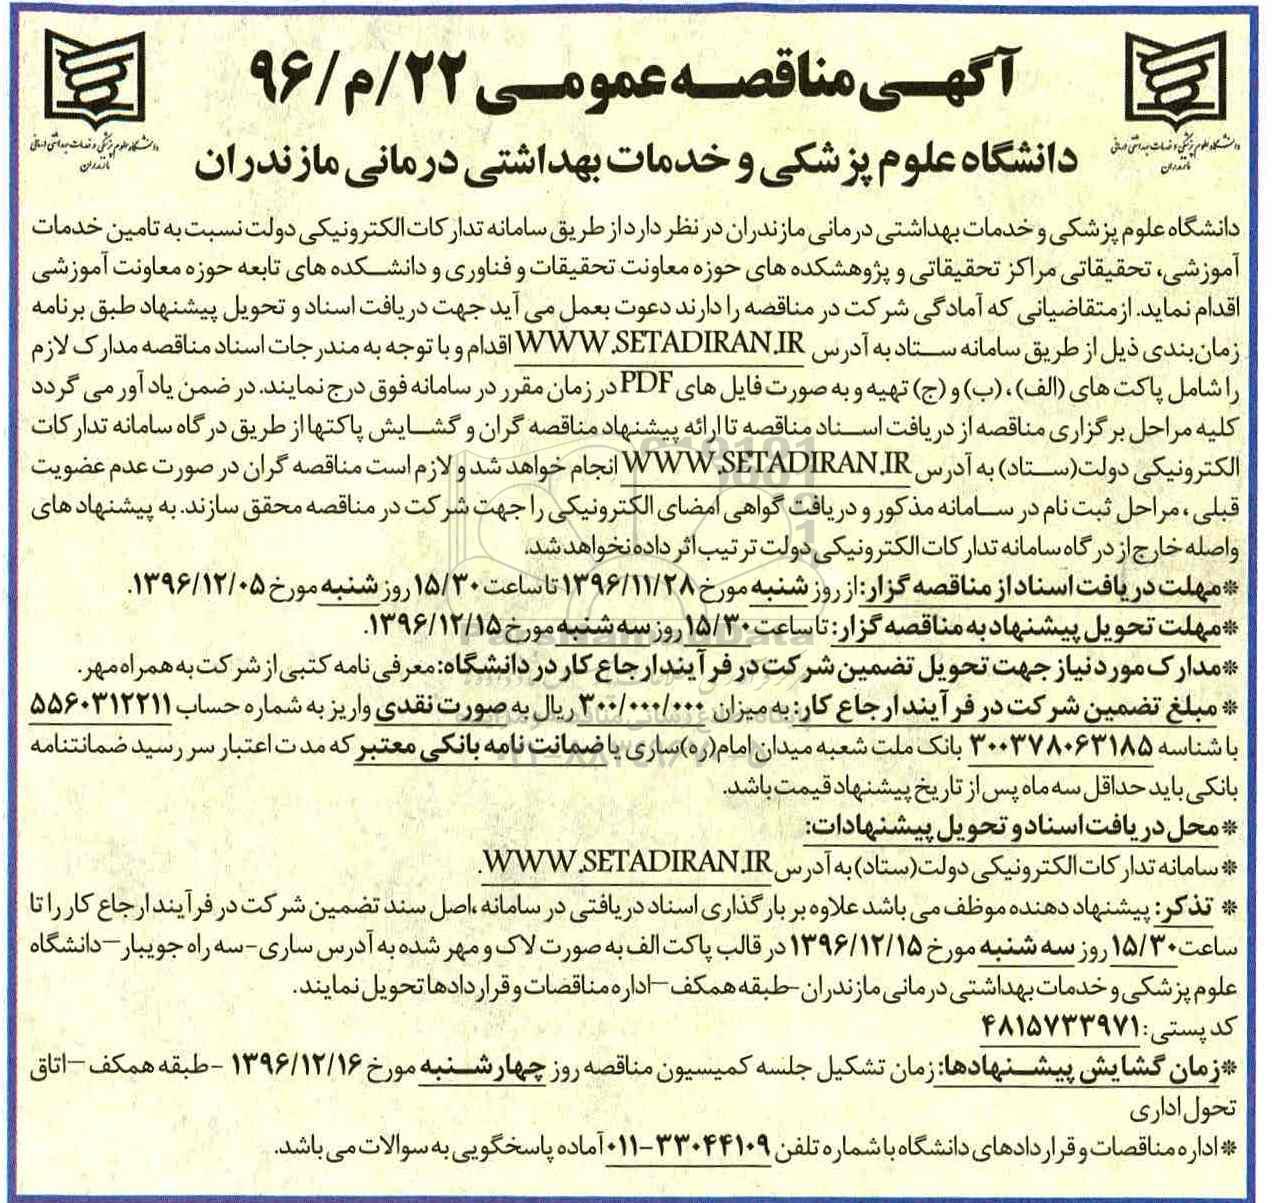 آگهی مناقصه عمومی ۲۲/م/۹۶
دانشگاه علوم پزشکی و خدمات بهداشتی درمانی مازندران
دانشگاه علوم پزشکی و خدمات بهداشتی درمانی
مازندران
دانشگاه علوم پزشکی و خدمات بهداشتی درمانی
مازندران
دانشگاه علوم پزشکی و خدمات بهداشتی درمانی مازندران در نظر دارد از طریق سامانه تدارکات الکترونیکی دولت نسبت به تامین خدمات
آموزشی، تحقیقاتی مراکز تحقیقاتی و پژوهشکده های حوزه معاونت تحقیقات و فناوری و دانشکده های تابعه حوزه معاونت آموزشی
اقدام نماید. از متقاضیانی که آمادگی شرکت در مناقصه را دارند دعوت بعمل می آید جهت دریافت اسناد و تحویل پیشنهاد طبق برنامه
زمان‌بندی ذیل از طریق سامانه ستاد به آدرس WWW.SETADIRAN.IR اقدام و با توجه به مندرجات اسناد مناقصه مدارک لازم
را شامل پاکت های (الف)، (ب) و (ج) تهیه و به صورت فایل های PDF در زمان مقرر در سامانه فوق درج نمایند. در ضمن یاد آور می گردد
کلیه مراحل برگزاری مناقصه از دریافت اسناد مناقصه تا ارائه پیشنهاد مناقصه گران و گشایش پاکتها از طریق درگاه سامانه تدارکات
الکترونیکی دولت(ستاد) به آدرس WWW.SETADIRAN.IR انجام خواهد شد و لازم است مناقصه گران در صورت عدم عضویت
قبلی، مراحل ثبت نام در سامانه مذکور و دریافت گواهی امضای الکترونیکی را جهت شرکت در مناقصه محقق سازند. به پیشنهاد های
واصله خارج از درگاه سامانه تدارکات الکترونیکی دولت ترتیب اثر داده نخواهد شد.
*مهلت دریافت اسناد از مناقصه گزار: از روز شنبه مورخ ۱۳۹۶/۱۱/۲۸ تا ساعت ۱۵/۳۰ روز شنبه مورخ ۱۳۹۶/۱۲/۰۵.
*مهلت تحویل پیشنهاد به مناقصه گزار: تا ساعت ۱۵/۳۰ روز سه شنبه مورخ ۱۳۹۶/۱۲/۱۵.
*مدارک مورد نیاز جهت تحویل تضمین شرکت در فرآیند ارجاع کار در دانشگاه: معرفی نامه کتبی از شرکت به همراه مهر.
* مبلغ تضمین شرکت در فرآیند ارجاع کار: به میزان ۳۰۰/۰۰۰/۰۰۰ ریال به صورت نقدی واریز به شماره حساب ۵۵۶۰۳۱۲۲۱۱
با شناسه ۳۰۰۳۷۸۰۶۳۱۸۵ بانک ملت شعبه میدان امام(ره)ساری یا ضمانت نامه بانکی معتبر که مدت اعتبار سررسید ضمانتنامه
بانکی باید حداقل سه ماه پس از تاریخ پیشنهاد قیمت باشد.
* محل دریافت اسناد و تحویل پیشنهادات:
* سامانه تدارکات الکترونیکی دولت(ستاد) به آدرس WWW.SETADIRAN.IR.
* تذکر: پیشنهاد دهنده موظف می باشد علاوه بر بارگذاری اسناد دریافتی در سامانه ،اصل سند تضمین شرکت در فرآیند ارجاع کار را تا
ساعت ۱۵/۳۰ روز سه شنبه مورخ ۱۳۹۶/۱۲/۱۵ در قالب پاکت الف به صورت لاک و مهر شده به آدرس ساری-سه راه جویبار–دانشگاه
علوم پزشکی و خدمات بهداشتی درمانی مازندران-طبقه همکف–اداره مناقصات و قراردادها تحویل نمایند.
کد پستی: ۴۸۱۵۷۳۳۹۷۱
*زمان گشایش پیشنهادها: زمان تشکیل جلسه کمیسیون مناقصه روز چهارشنبه مورخ ۱۳۹۶/۱۲/۱۶ -طبقه همکف –اتاق
تحول اداری
* اداره مناقصات و قراردادهای دانشگاه با شماره تلفن ۳۳۰۴۴۱۰۹-۰۱۱ آماده پاسخگویی به سوالات می باشد.